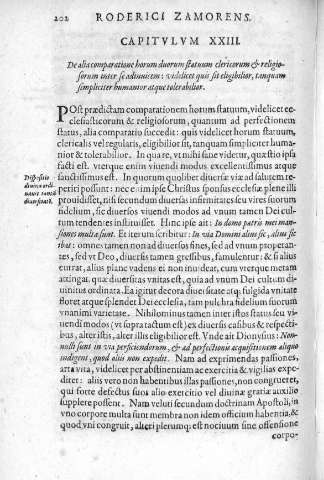 202 RODERICI ZAMORENS.
CAPITVLVM XXIII.
De alia comparatione horum duorum statuum clericorum & religio-
sorum inter se adinuicem: videlicet quis sit eligibilior, tanquam
simpliciter humanior atque tolerabilior.
POst prædictam comparationem horum statuum, videlicet ec-
clesiasticorum & religiosorum, quantum ad perfectionem
status, alia comparatio succedit: quis videlicet horum statuum,
clericalis vel regularis, eligibilior sit, tanquam simpliciter huma-
nior & tolerabilior. In qua re, vt mihi sane videtur, quæstio ipsa
facti est. vterque enim viuendi modus excellentissimus atque
sanctissimus est. In quorum quolibet diuersæ viæ ad salutem re-
periri possunt: nec enim ipse Christus sponsus ecclesiæ plene illi
prouidisset, nisi secundum diuersas infirmitates seu vires suorum
fidelium, sic diuersos viuendi modos ad vnum tamen Dei cul-
tum tendentes instituisset. Hinc ipse ait: In domo patris mei man-
siones multæ sunt. Et iterum scribitur: In via Domini alius sic, alius sic
ibat: omnes tamen non ad diuersos fines, sed ad vnum properan-
tes, sed vt Deo, diuersis tamen gressibus, famulentur: & si alius
currat, alius plane vadens ei non inuideat, cum vterque metam
attingat. quæ diuersitas vnitas est, quia ad vnum Dei cultum di-
uinitus ordinata. Ea igitur decora diuersitate atque fulgida vnitate
floret atque splendet Dei ecclesia, tam pulchra fidelium suorum
vnanimi varietate. Nihilominus tamen inter istos status seu vi-
uendi modos (vt supra tactum est) ex diuersis casibus & respecti-
bus, alter istis, alter illis eligibilior est. Vnde ait Dionysius: Non-
nulli sunt in via perficiendorum, & ad perfectionis acquisitionem aliquo
indigent, quod aliis non expedit. Nam ad exprimendas passiones,
arcta vita, videlicet per abstinentiam ac exercitia & vigilias expe-
diret: aliis vero non habentibus illas passiones, non congrueret,
qui forte defectus suos alio exercitio vel diuina gratia auxilio
supplere possent. Nam veluti secundum doctrinam Apostoli, in
vno corpore multa sunt membra non idem officium habentia, &
quod vni congruit, alteri plerumque est nociuum sine offensione
corpo-
Dispositio
diuina ordi-
nauit